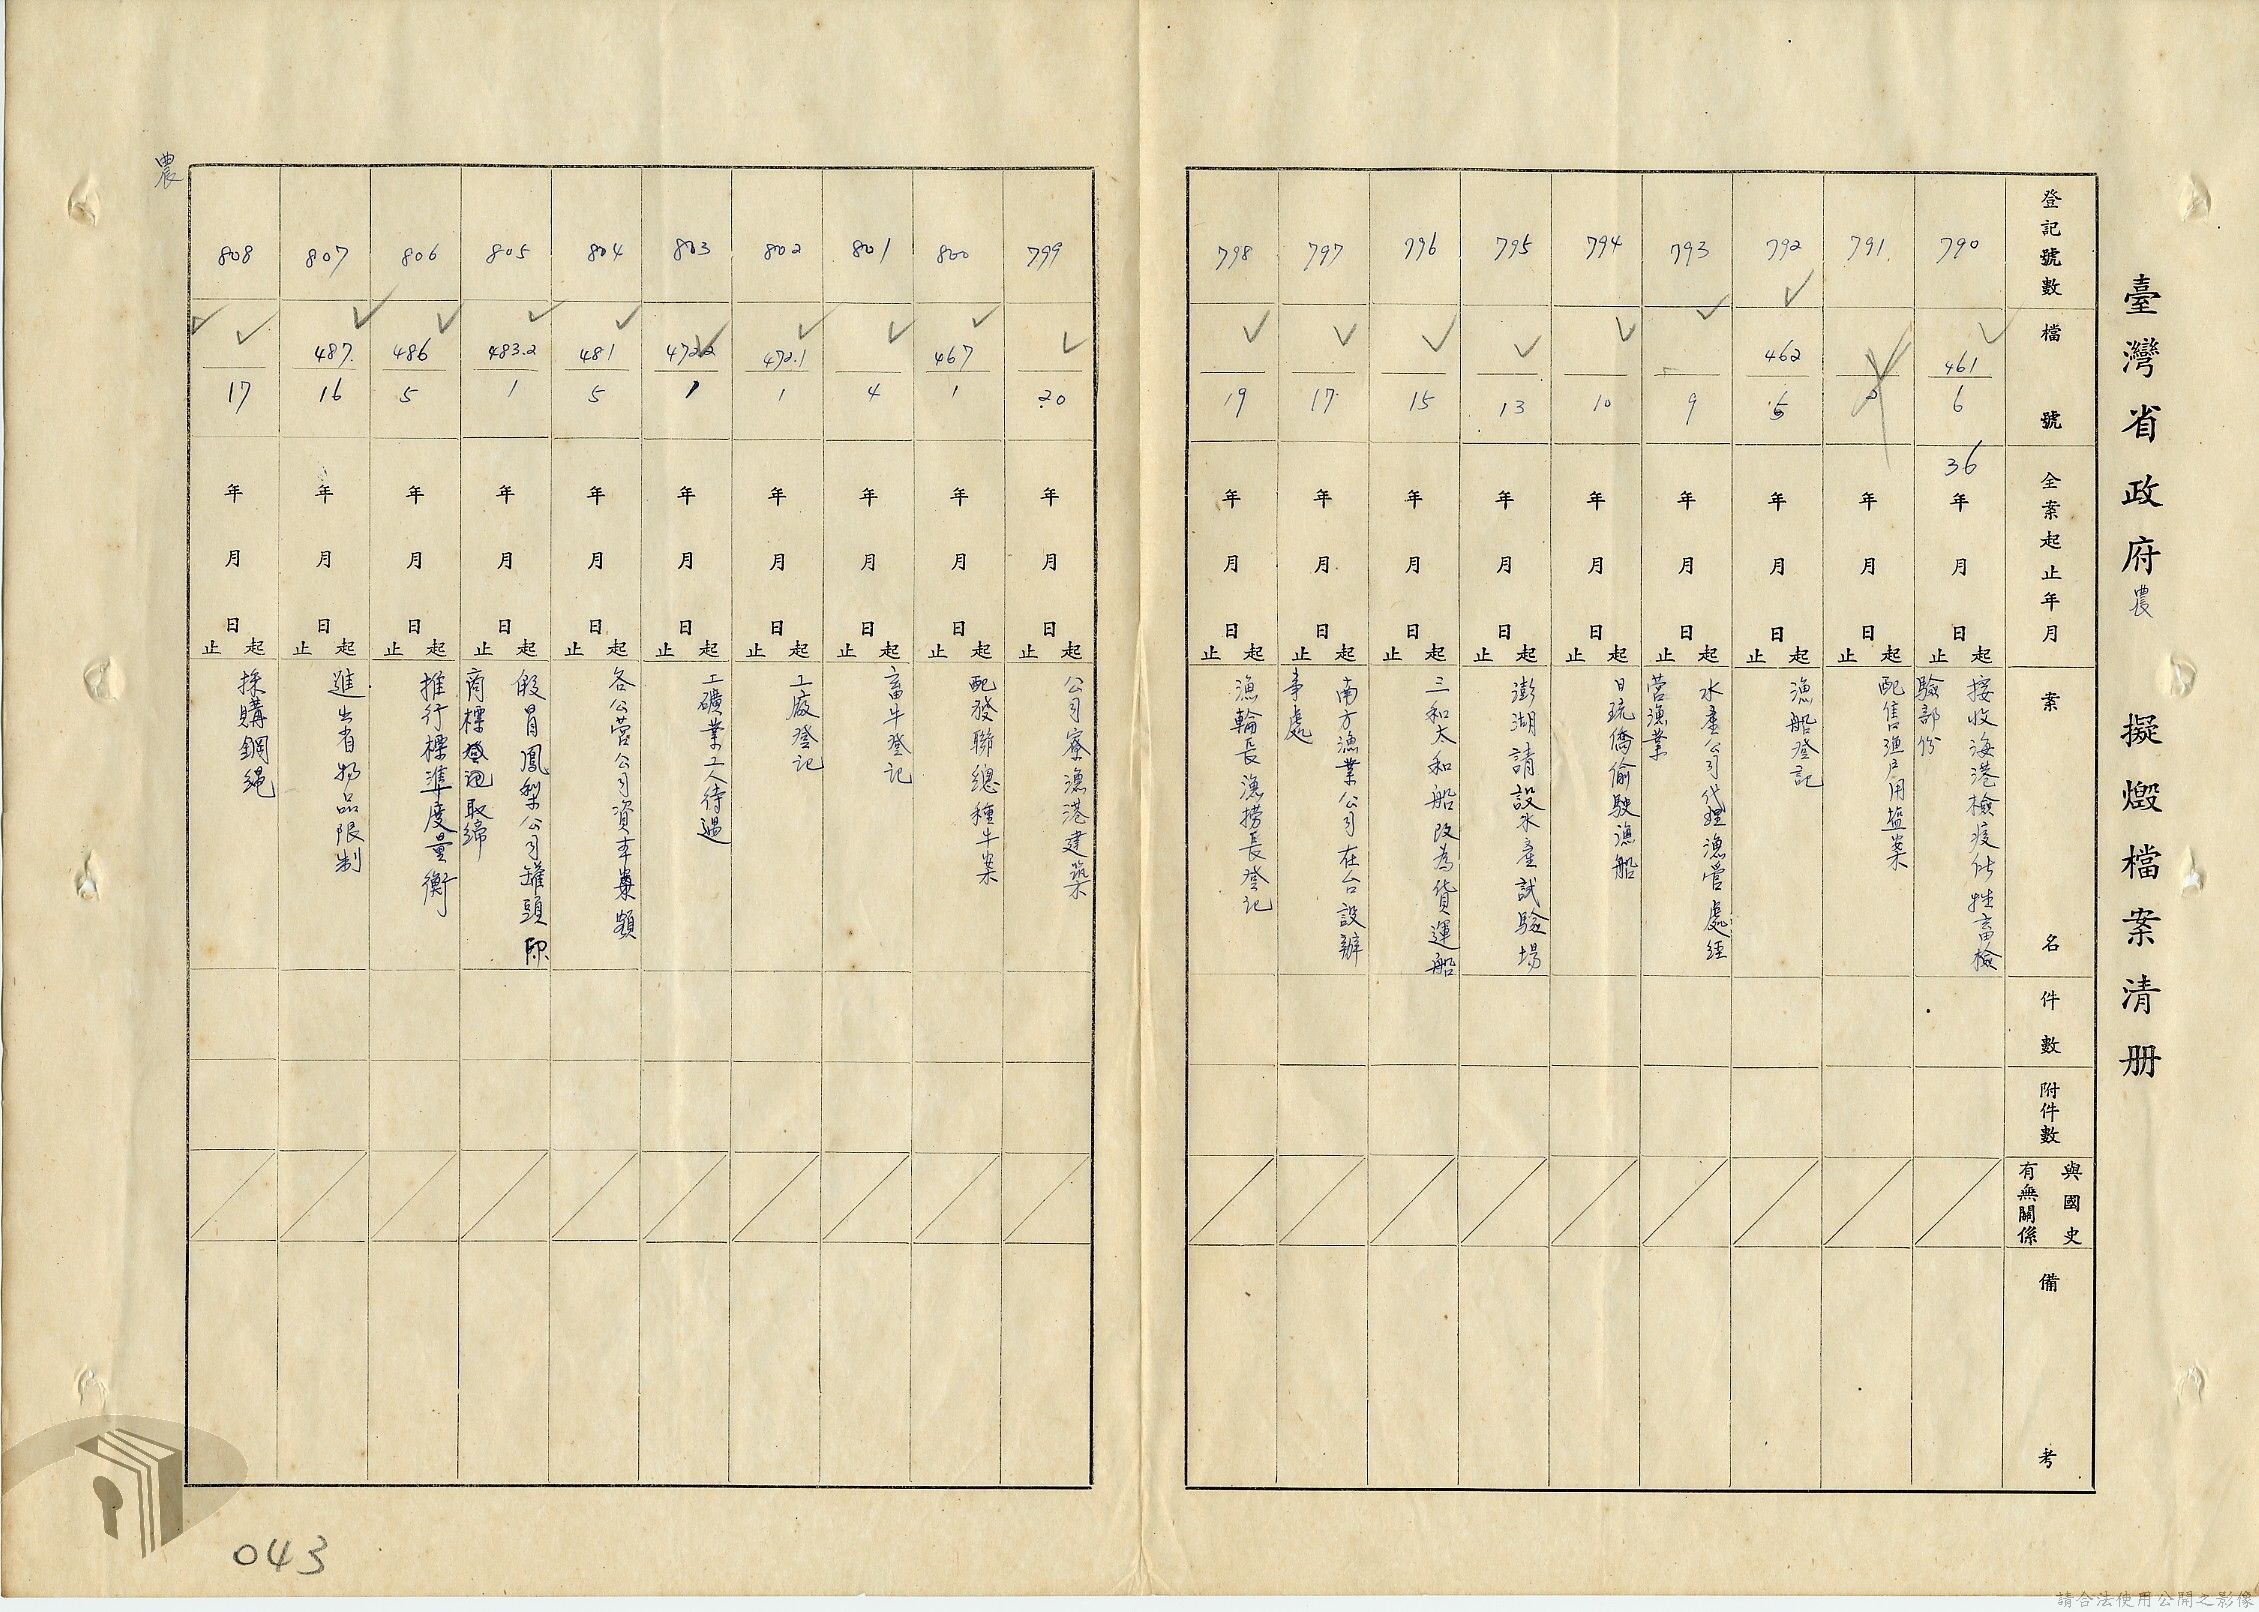 臺灣省政府農 擬燬檔案清册
登記號數
檔號
全案起止年月
案名
件數
附件數
與國史
有無關係
備考
790
461
6
36年月日起止
接收海港檢疫所牲畜檢
驗部份
791
年月日起止
配售漁户用盐案
792
462
5
年月日起止
漁船登記
793
9
年月日起止
水產公司代理漁管處經
营漁業
794
10
年月日起止
日琉僑偷駛漁船
795
13
年月日起止
澎湖請設水產試驗場
796
15
年月日起止
三和大和船改為貨運船
797
17
年月日起止
南方漁業公司在台設辦
事處
798
19
年月日起止
漁輪長漁撈長登记
799
20
年月日起止
公司寮漁港建築
800
467
1
年月日起止
配發聯總種牛案
801
4
年月日起止
畜牛登记
802
472.1
1
年月日起止
工廠登记
803
472.2
1
年月日起止
工礦業工人待遇
804
481
5
年月日起止
各公营公司資本額
805
483.2
1
年月日起止
假冒鳳梨公司罐頭
商標取締
806
486
5
年月日起止
推行標準度量衡
807
487.
16
年月日起止
進出省物品限制
808
17
年月日起止
採購鋼繩
農
043
請合法使用公開之影像